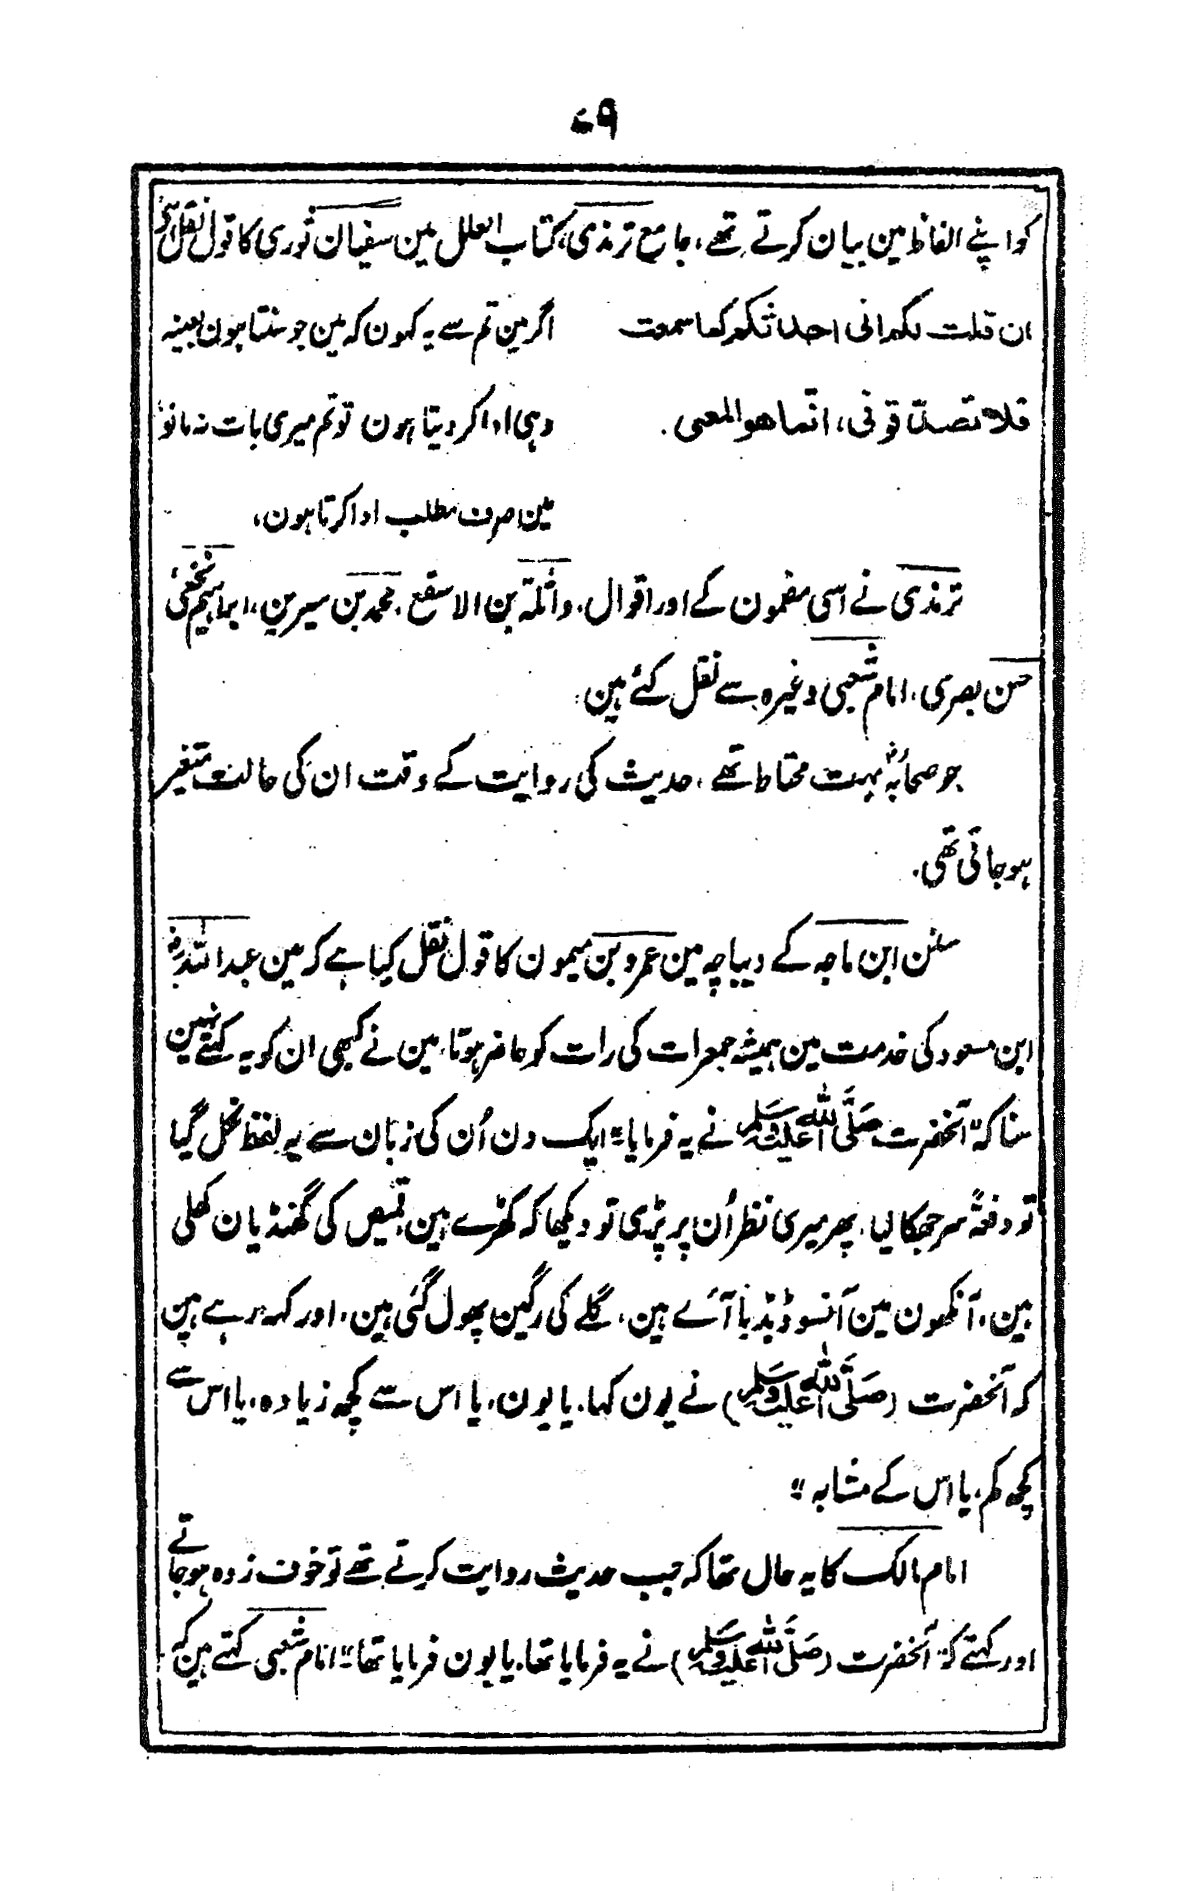 ۷۹
کو اپنے الفاظ مین بیان کرتے تھے، جامع ترمذی، کتاب العلل مین سفیان ثوری کا قول نقل کیا ہے
ان قلت لکم انی احدثکم کما سمعت
فلا تصدقونی، انما ھو المعنی.
اگر مین تم سے یہ کہون کہ مین جو سنتا ہون بعینہ
وہی ادا کر دیتا ہون تو تم میری بات نہ مانو
مین صرف مطلب ادا کرتا ہون،
ترمذی نے اسی مضمون کے اور اقوال، واثلۃ بن الاسقع، محمد بن سیرین، ابراہیم نخعی،
حسن بصری، امام شعبی وغیرہ سے نقل کئے ہین.
جو صحابہؓ بہت محتاط تھے، حدیث کی روایت کے وقت ان کی حالت متغیر
ہو جاتی تھی.
سنن ابن ماجہ کے دیباچہ مین عمرو بن میمون کا قول نقل کیا ہے کہ مین عبداللہؓ
ابن مسعود کی خدمت مین ہمیشہ جمعرات کی رات کو حاضر ہوتا، مین نے کبھی ان کو یہ کہتے نہین
سنا کہ "آنحضرت صَلَّی اللہ عَلَیْہِ وَسَلَّم نے یہ فرمایا" ایک دن اُن کی زبان سے یہ لفظ نکل گیا
تو دفعۃً سر جھکا لیا، پھر میری نظر اُن پر پڑی تو دیکھا کہ کھڑے ہین قمیص کی گھنڈیان کھلی
ہین، آنکھون مین آنسو ڈبڈبا آئے ہین، گلے کی رگین پھول گئی ہین، اور کہہ رہے ہین
کہ آنحضرت (صَلَّی اللہ عَلَیْہِ وَسَلَّم) نے یون کہا، یا یون، یا اس سے کچھ زیادہ، یا اس سے
کچھ کم، یا اس کے مشابہ"
امام مالک کا یہ حال تھا کہ جب حدیث روایت کرتے تھے تو خوف زدہ ہو جاتے
اور کہتے کہ "آنحضرت (صَلَّی اللہ عَلَیْہِ وَسَلَّم) نے یہ فرمایا تھا، یا یون فرمایا تھا" امام شعبی کہتے ہین کہ